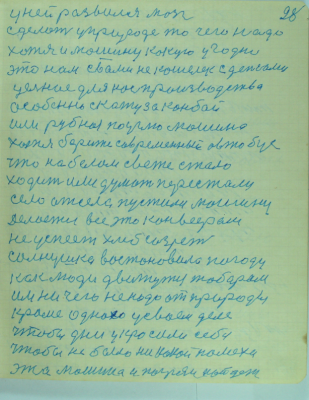 28
у ней развился мозг
сделат у природе то чего надо
хотя и машину какую угодно
это нам стали не кошелек с деньгами
ценние для нас производства
особенно скажу за комбай
или рубная почти машина
хотя берите современный автобус
что на белом свете стало
ходит или думат перестали
село отсела пустили машину
делается все это конвеерам
не успеет хлеб созрет
солнушка востоновила погоду
как люди движутся табарам
им ни чего не надо от природи
кроме однако усваем деле
чтоби дни укросили себя
чтоби не было ни какой помехи
эта машина и